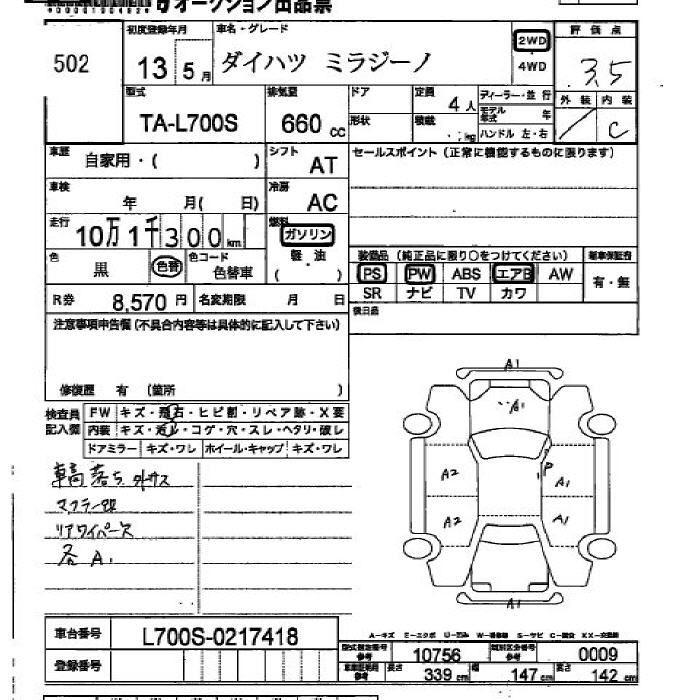 オークション出品票
502
初度登録年月
13 5月
車名・グレード
ダイハツ ミラジーノ
2WD
4WD
評価点
3.5
外装 内装
C
型式
TA-L700S
排気量
660 cc
ドア
形状
定員
4人
積載
kg
ディーラー・並行
モデル年式 年
ハンドル 左・右
車歴
自家用・( )
シフト
AT
セールスポイント（正常に機能するものに限ります）
車検
年 月( 日)
冷房
AC
走行
10万1千300km
燃料
ガソリン
軽・油
( )
色
黒
色替
色コード
色替車
装備品（純正品に限り○をつけてください）
PS PW ABS エアB AW
SR ナビ TV カワ
新車保証書
有・無
R券
8,570円
名変期限 月 日
後日品
注意事項申告欄（不具合内容等は具体的に記入して下さい）
修復歴 有 （箇所 ）
検査員記入欄
FW キズ・飛石・ヒビ割・リペア跡・X要
内装 キズ・汚レ・コゲ・穴・スレ・ヘタリ・破レ
ドアミラー キズ・ワレ ホイール・キャップ キズ・ワレ
車高落ち 外サス
リアワイパーレス
各A1
A1
A1
A2
P
A1
A2
A1
A1
車台番号
L700S-0217418
登録番号
A－キズ E－エクボ U－凹み W－補修跡 S－サビ C－腐食 XX－交換済
型式指定番号 参考
10756
類別区分番号 参考
0009
車庫証明用 参考
長さ 339cm
幅 147cm
高さ 142cm